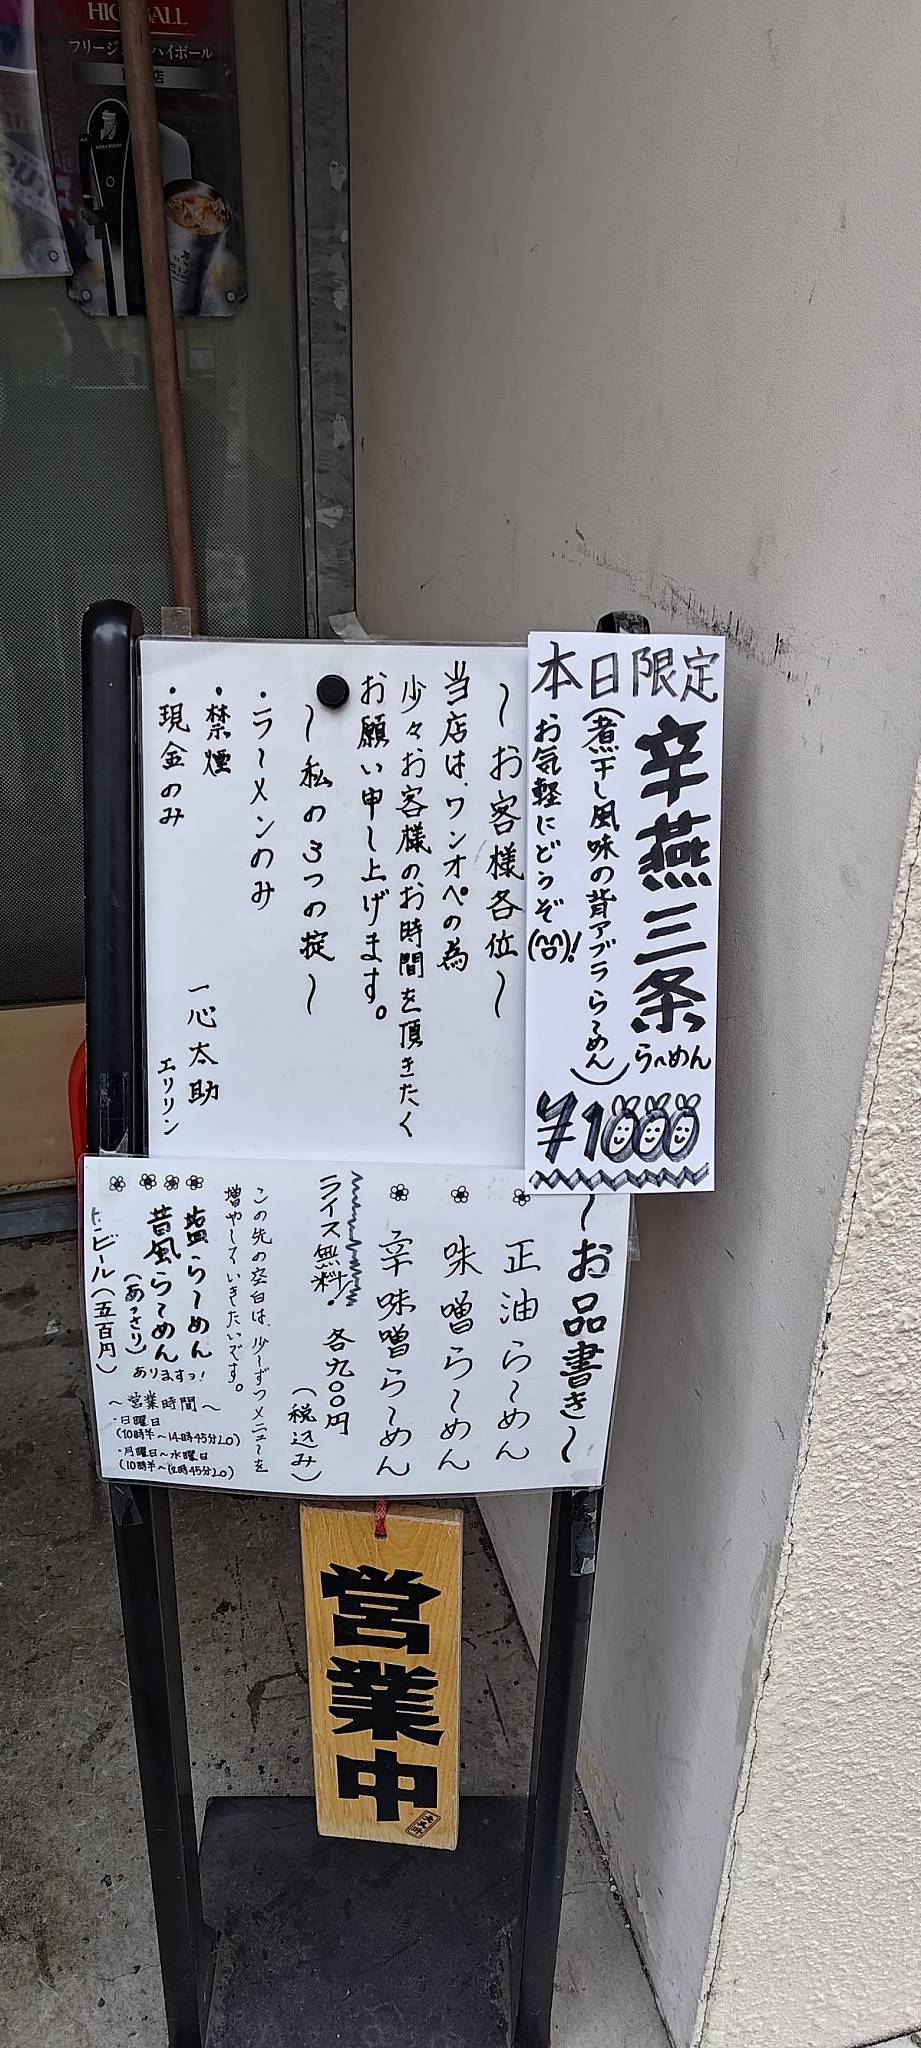 HIGHBALL
本日限定
辛燕三条
ら〜めん
(煮干し風味の背アブララ〜めん)
お気軽にどうぞ(^o^)!
¥1000
〜お客様各位〜
当店は、ワンオペの為
少々お客様のお時間を頂きたく
お願い申し上げます。
〜私の3つの掟〜
・ラーメンのみ
・禁煙
・現金のみ
一心太助
エリリン
〜お品書き〜
正油ら〜めん
味噌ら〜めん
辛味噌ら〜めん
ライス無料! 各九〇〇円
(税込み)
この先の空白は、少〜ずつメニューを
増やしていきたいです。
塩ら〜めん
昔風ら〜めん
(あっさり)
ありますョ!
ビール(五百円)
〜営業時間〜
・日曜日
(10時半〜14時45分LO)
・月曜日〜水曜日
営業中